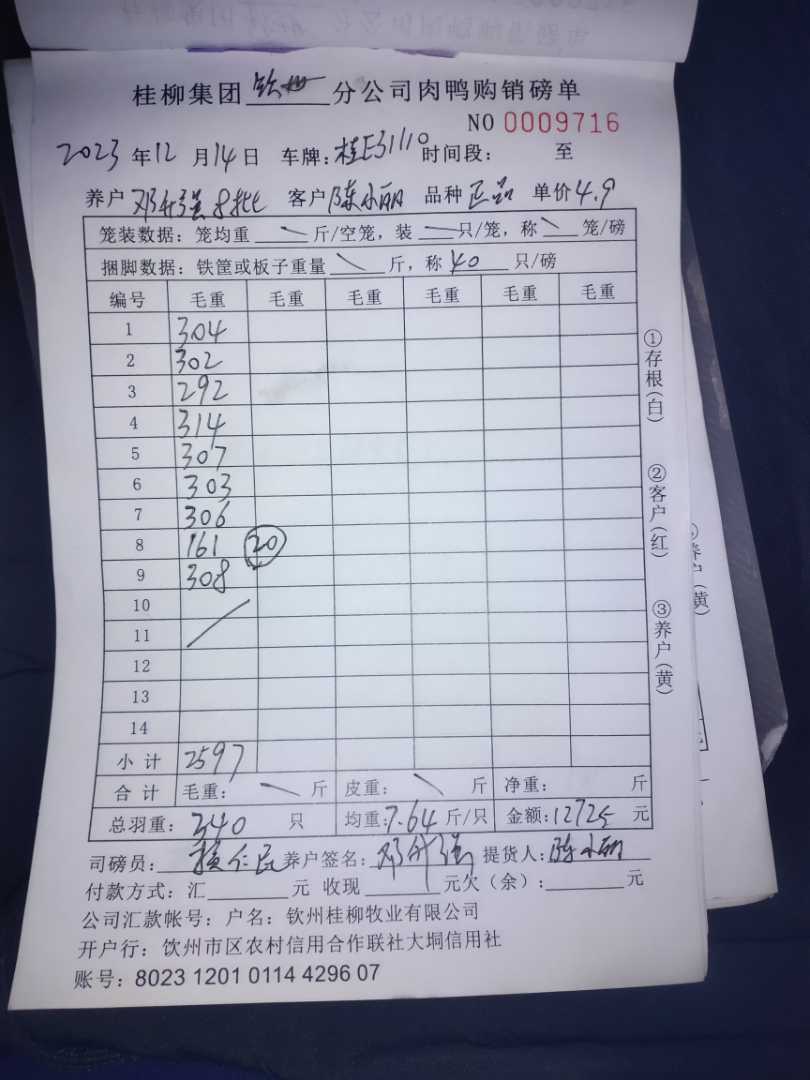 桂柳集团 钦州 分公司肉鸭购销磅单
NO 0009716
2023年12月14日 车牌：桂E31110 时间段： 至
养户 邓升强8批 客户 陈小丽 品种 正品 单价 4.9
笼装数据：笼均重 斤/空笼，装 只/笼，称 笼/磅
捆脚数据：铁筐或板子重量 斤，称 40 只/磅
编号 毛重 毛重 毛重 毛重 毛重 毛重
1 304
2 302
3 292
4 314
5 307
6 303
7 306
8 161 20
9 308
10
11
12
13
14
小 计 2597
合 计 毛重： 斤 皮重： 斤 净重： 斤
总羽重：340 只 均重：7.64 斤/只 金额：12725 元
司磅员： 仁民 养户签名：邓升强 提货人：陈小丽
付款方式：汇 元 收现 元欠（余）： 元
公司汇款帐号：户名：钦州桂柳牧业有限公司
开户行：饮州市区农村信用合作联社大垌信用社
账号：8023 1201 0114 4296 07
①存根（白）
②客户（红）
③养户（黄）